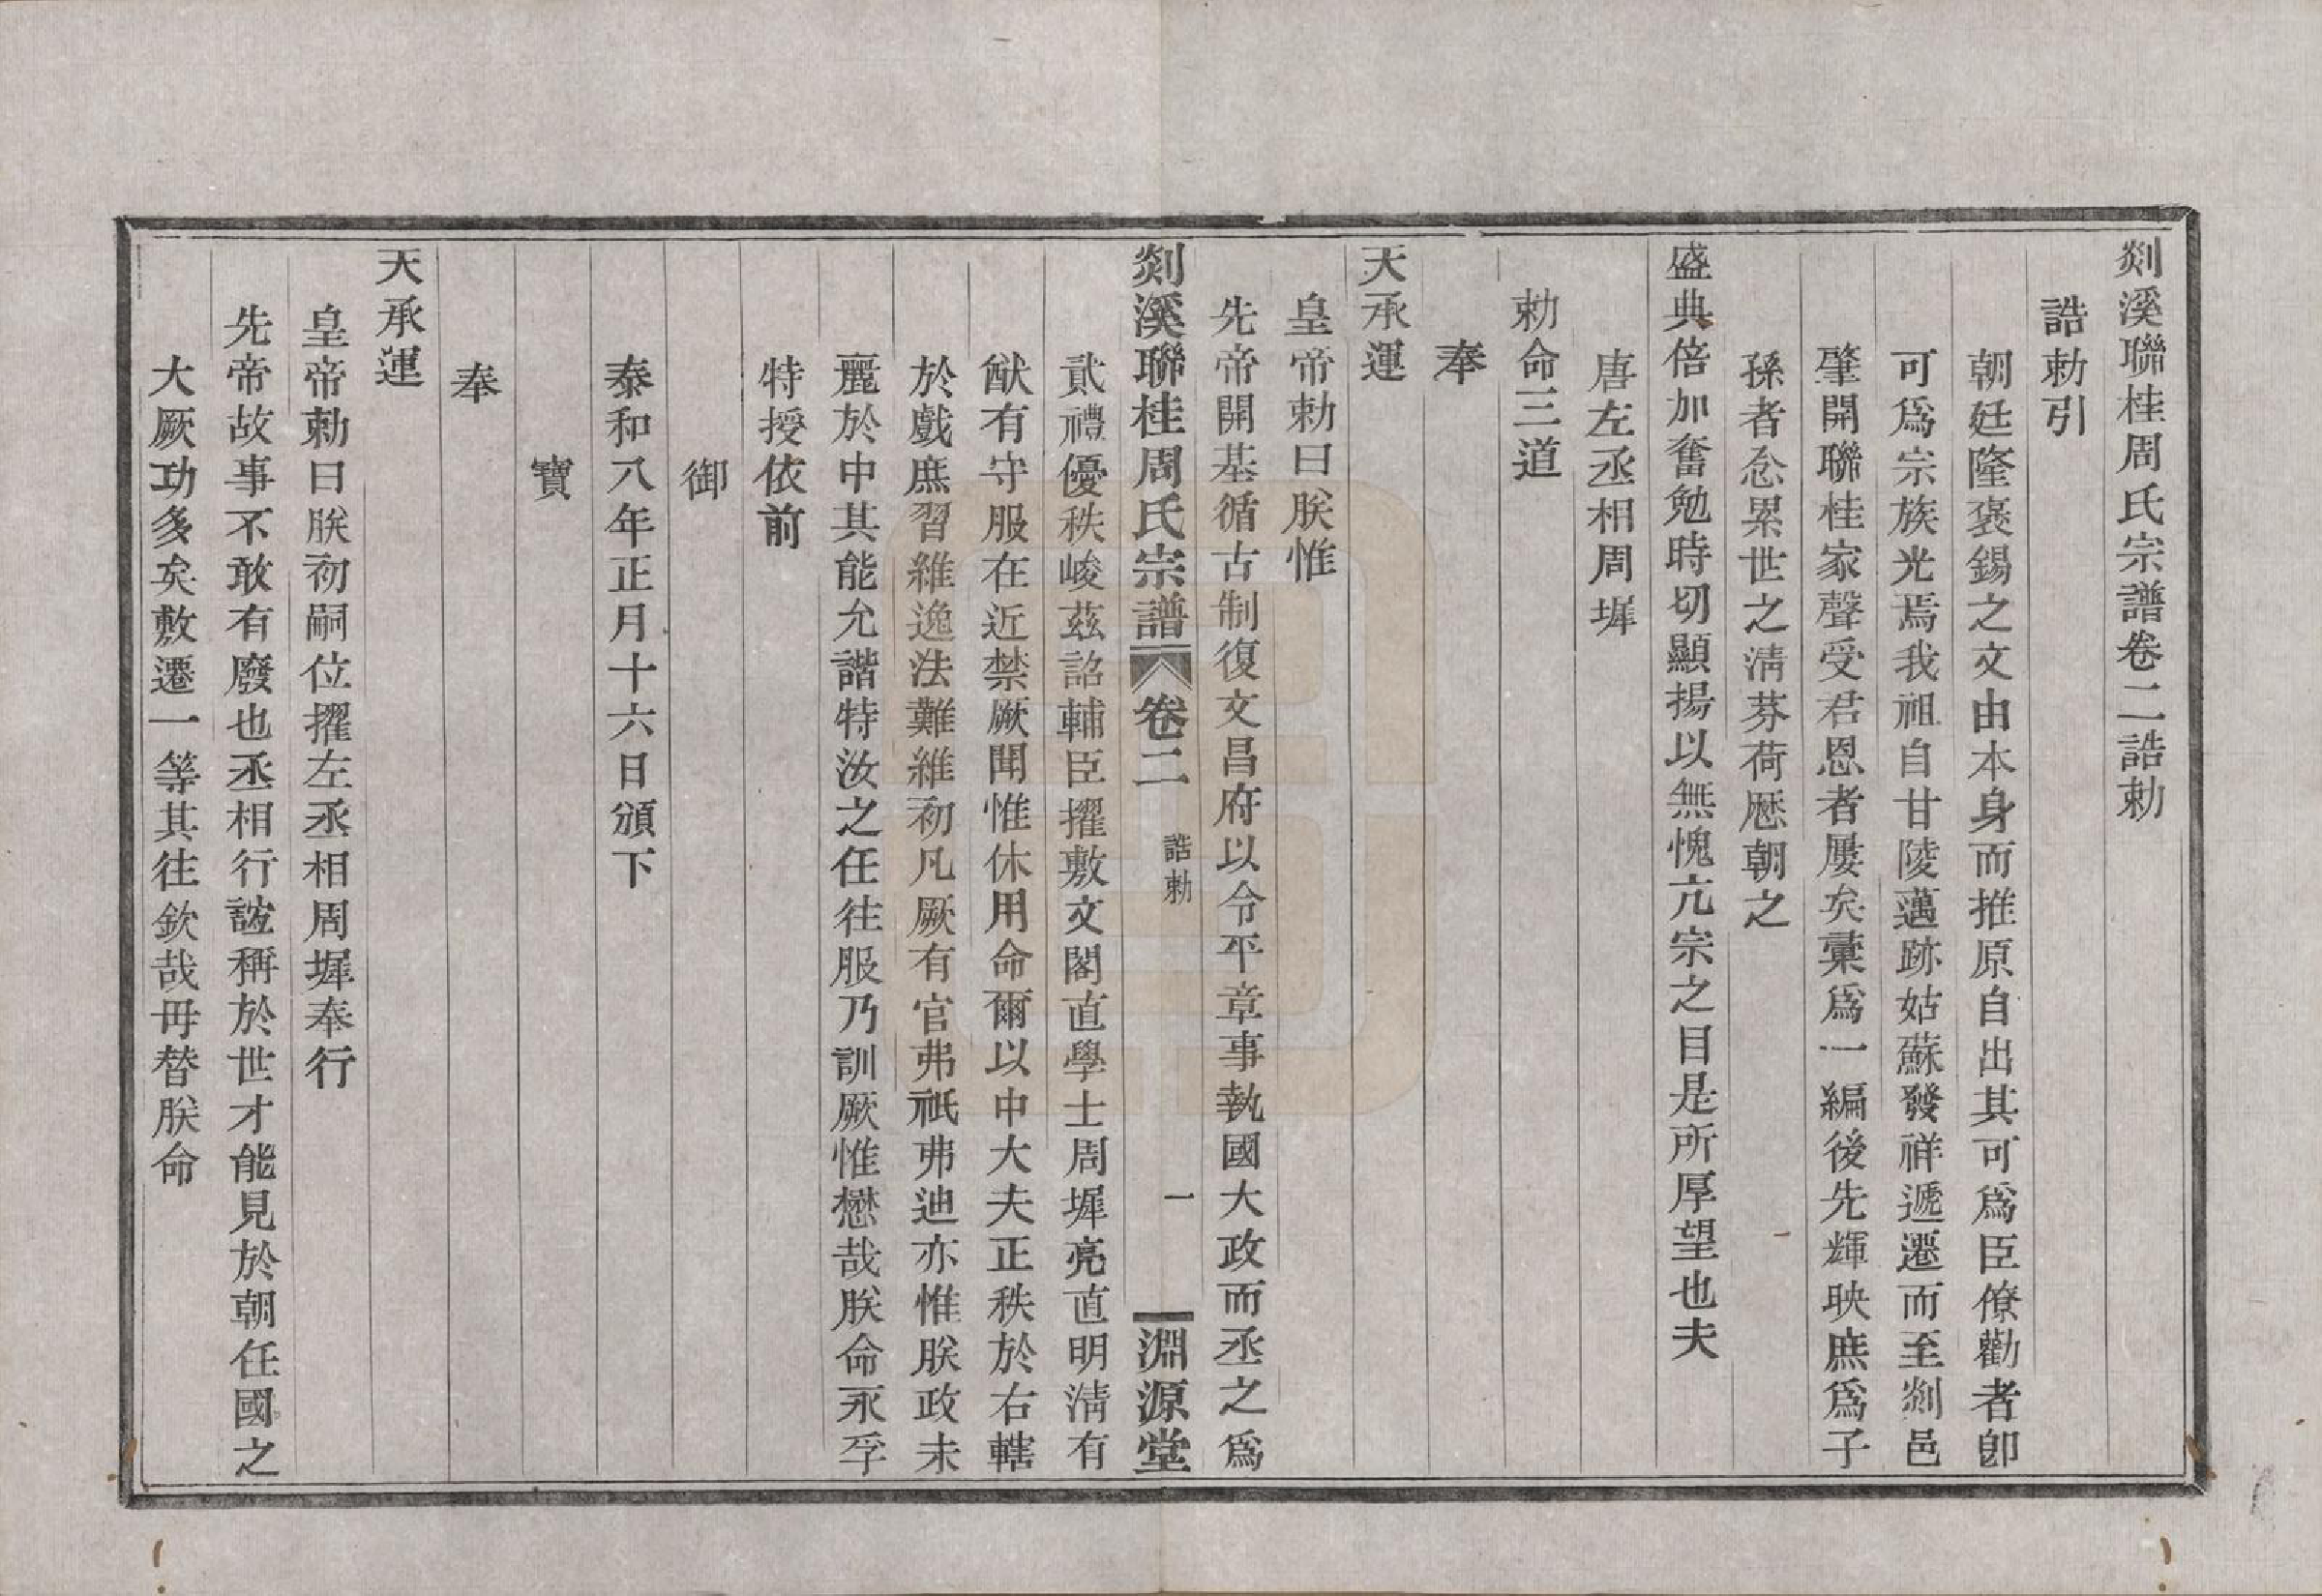 剡溪聯桂周氏宗譜卷二誥勅
誥勅引
朝廷隆褒錫之文由本身而推原自出其可爲臣僚勸者卽
可爲宗族光焉我祖自甘陵邁跡姑蘇發祥遞遷而至剡邑
肇開聯桂家聲受君恩者屢矣彙爲一編後先輝映庶爲子
孫者念累世之淸芬荷歷朝之
盛典倍加奮勉時切顯揚以無愧亢宗之目是所厚望也夫
唐左丞相周墀
勅命三道
奉
天承運
皇帝勅曰朕惟
先帝開基循古制復文昌府以令平章事執國大政而丞之爲
剡溪聯桂周氏宗譜 卷二 誥勅 一 淵源堂
貳禮優秩峻茲詔輔臣擢敷文閣直學士周墀亮直明淸有
猷有守服在近禁厥聞惟休用命爾以中大夫正秩於右轄
於戲庶習維逸法難維初凡厥有官弗祇弗迪亦惟朕政未
麗於中其能允諧特汝之任往服乃訓厥惟懋哉朕命永孚
特授依前
御
泰和八年正月十六日頒下
寶
奉
天承運
皇帝勅曰朕初嗣位擢左丞相周墀奉行
先帝故事不敢有廢也丞相行誼稱於世才能見於朝任國之
大厥功多矣敷遷一等其往欽哉毋替朕命